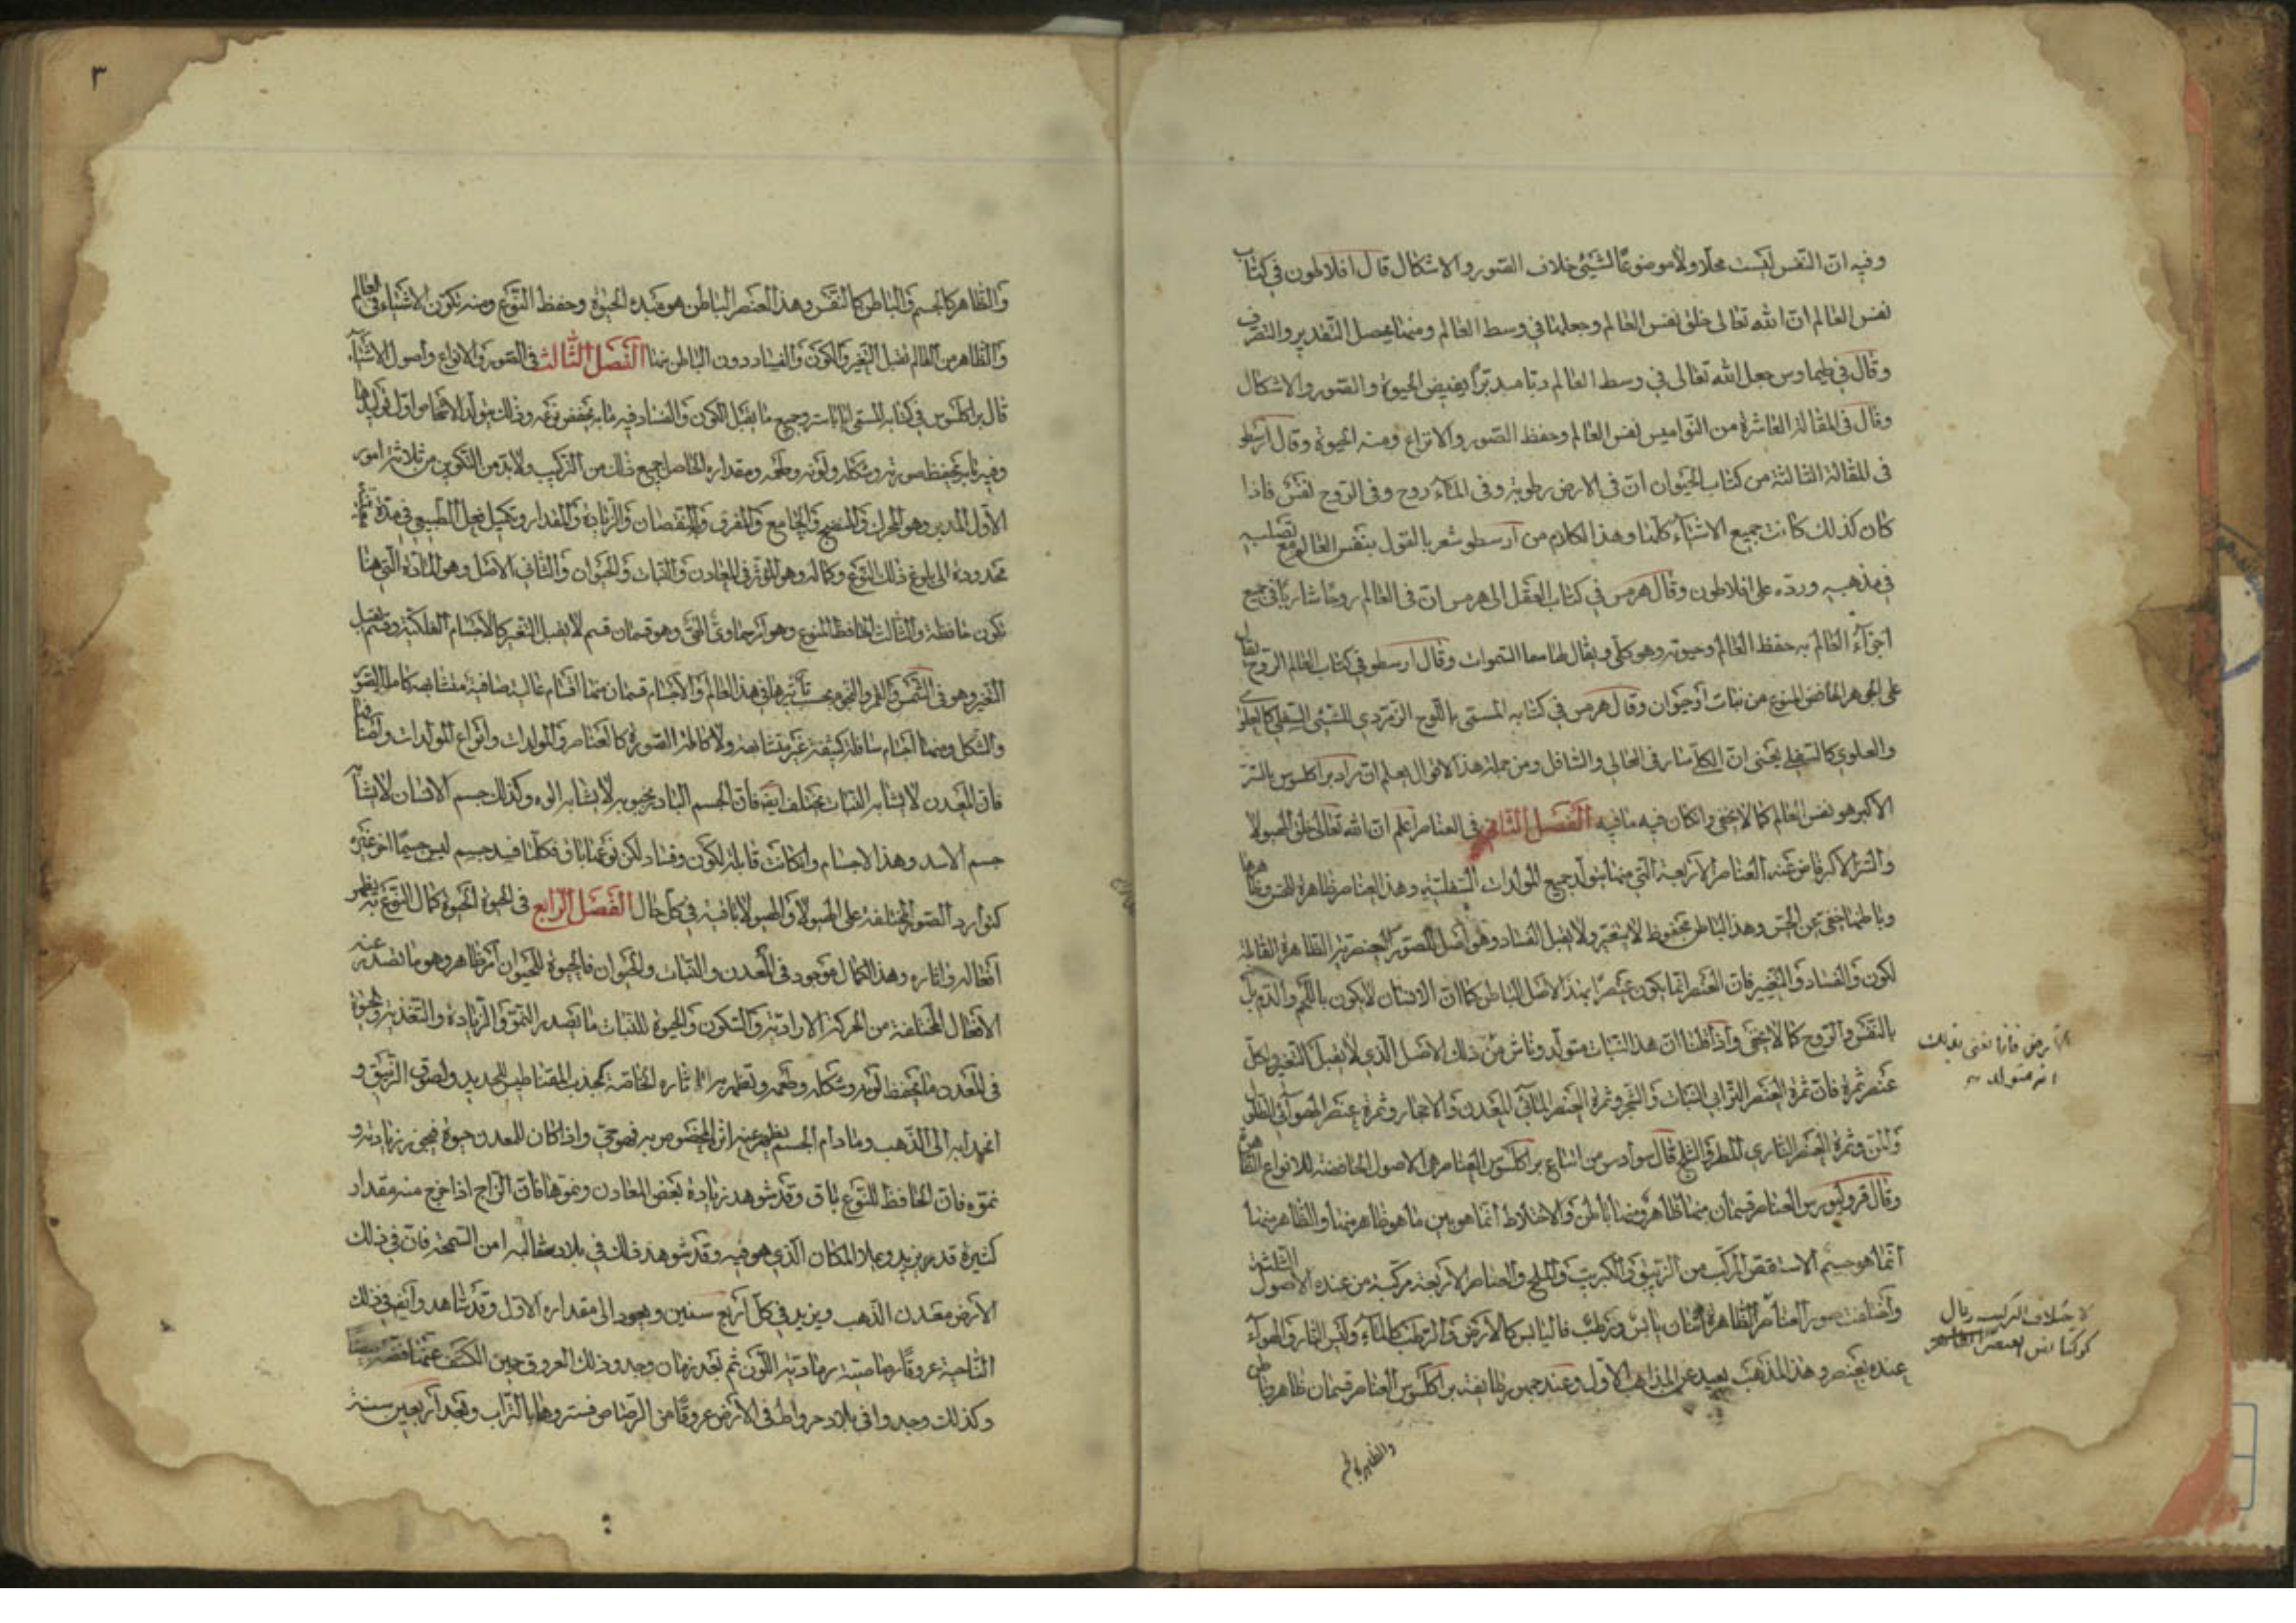 وفيه ان النفس ليست محلا ولا موضوعا لشيئ خلاف الصور والاشكال قال افلاطون في كتاب
نفس العالم ان الله تعالى خلق نفس العالم وجعلها في وسط العالم ومنها يحصل التقدير والتصرف
وقال في طيماوس جعل الله تعالى في وسط العالم ربا مدبرا يفيض الحيوة والصور والاشكال
وقال في المقالة العاشرة من النواميس نفس العالم وحفظ الصور والانواع ومنه الحيوة وقال ارسطو
في المقالة الثالثة من كتاب الحيوان ان في الارض رطوبة وفي الماء روح وفي الروح نفس فاذا
كان كذلك كانت جميع الاشياء كلها وهذا الكلام من ارسطو شعر بالقول بنفس العالم مع تصلبه
في مذهبه ورده على افلاطون وقال هرمس في كتاب العقل الى هرمس ان في العالم روحا ساريا في جميع
اجزاء العالم به حفظ العالم وحيوته وهو كلي ويقال لها سما السموات وقال ارسطو في كتاب العالم الروح يقال
على الجوهر الحافض للنوع من نبات او حيوان وقال هرمس في كتابه المسمى باللوح الزمردي الشيئ السفلي كالعلوي
والعلوي كالسفلي يعني ان الكل سار في العالي والسافل ومن جملة هذا الاقوال يعلم ان مراد براكلسوس بالسر
الاكبر هو نفس العالم كما لا يخفى وان كان فيه ما فيه الفصل الثاني في العناصر اعلم ان الله تعالى خلق الهيولا
والسر الاكبر فاض عنه العناصر الاربعة التي منها يتولد جميع المولدات السفلية وهذا العناصر ظاهرة للحس
وباطنها خفي عن الحس وهذا الباطن محفوظ لا يتغير ولا يقبل الفساد وهو اصل الصور العنصرية الظاهرة القابلة
لكون والفساد والتغيير فان العنصر انما يكون عنصرا بهذا الاصل الباطن كما ان الانسان لا يكون باللحم والدم بل
بالنفس والروح كما لا يخفى واذا قلنا ان هذا النبات متولد وناش من ذلك الاصل الذي لا يقبل التغير ولكل
عنصر ثمرة فان ثمرة العنصر الترابي النبات والشجر وثمرة العنصر المائي المعدن والاحجار وثمرة عنصر الهوائي الطل
والمن وثمرة العنصر الناري المطر والثلج قال سوادس من اتباع براكلسوس العناصر هي الاصول الحافضة للانواع
وقال قرولبورس العناصر قسمان منها ظاهر ومنها باطن والاختلاط انما هو بين ما هو ظاهر منها والظاهر منها
انما هو جسم الاستقص المركب من الزيبق والكبريت والملح والعناصر الاربعة مركبة من عنده الاصول الثلثة
واختلفت صور العناصر الظاهرة اثنان يابس ورطب فاليابس كالارض والرطب كالماء وليس النار والهواء
عنده بعنصر وهذا المذهب بعيد عن المذاهب الاول وعند جمهور طايفة براكلسوس العناصر قسمان ظاهر وباطن
والظاهر كالجسم
٣
والظاهر كالجسم والباطن كالنفس وهذا العنصر الباطن هو مبدء الحيوة وحفظ النوع ومنه تكون الاشياء في العالم
والظاهر من العالم تقبل التغير والكون والفساد دون الباطن منها الفصل الثالث في الصور والانواع واصول الاشياء
قال براكلسوس في كتابه المسمى وجميع ما يقبل الكون والفساد فيه ما به يحفض نوعه وذلك يتولد الاشخاص اولى توليدها
وفيه ما به يحفظ صورته وشكله ولونه وطعمه ومقداره الحاصل جميع ذلك من التركيب ولا بد من التكوين من ثلاثة امور
الاول المدبر وهو المحرك والمنضج والجامع والمفرق والنقصان والزيادة والمقدار وتكميل فعل الطبيعي في مدة
محدودة الى بلوغ ذلك النوع وكماله وهو المؤثر في المعادن والنبات والحيوان والثاني الاصل وهو المادة التي هنا
تكون حافظة والثالث الحافظ للنوع وهو اثر سماوي النمو وهو قسمان قسم لا يقبل التغير كالاجسام الفلكية وقسم يقبل
التغير وهو في الشمس والقمر والنجوم بحسب تاثيرها في هذا العالم والاجسام قسمان منها اقسام عالية صافية متشابهة كاملة الصور
والشكل ومنها اجسام سافلة كثيفة غير متشابهة ولا كاملة الصورة كالعناصر والمولدات وانواع المولدات واصنافها
فان المعدن لا يشابه النبات مختلف ايضا فان الجسم النبات لا يشابه الوه وكذلك جسم الانسان لا يشابه
جسم الاسد وهذا الاجسام وان كانت قابلة لكون وفساد لكن نوعها باق فكلما فسد جسم لبس جسما اخر غيره
كتوارد الصور المختلفة على الهيولا والهيولا باقية في كل حال الفصل الرابع في الحيوة الحيوة كمال النوع به يظهر
افعاله واثاره وهذا الكمال موجود في المعدن والنبات والحيوان فالحيوة للحيوان اثر ظاهر وهو ما تصدر عنه
الافعال المختلفة من الحركة الارادية والسكون والحيوة للنبات ما يصدر النمو والزيادة والتغذية والحيوة
في المعدن ما يحفظ لونه وشكله وطعمه وتظهر به اثاره الخاصة كجذب المقناطيس الحديد ولصوق الزيبق و
انجذابه الى الذهب وما دام الجسم يظهر عنه اثر المخصوص به فهو حي واذا كان للمعدن حيوة فيجوز زيادته و
نموه فان الحافظ للنوع باق وقد شوهد زيادة بعض المعادن ونموها فان الزاج اذا خرج منه مقدار
كثيرة قد يزيد ويملا المكان الذي هو فيه وقد شوهد ذلك في بلاد من السمحة فان في ذلك
الارض معدن الذهب ويزيد في كل اربع سنين ويعود الى مقداره الاول وقد شاهدوا ايضا في ذلك
الناحية عروقا رصاصية رمادية اللون ثم بعد زمان وجدو ذلك العروق حين الكشف عنها فضة
وكذلك وجدوا في بلاد حرواطه في الارض عروقا من الرصاص فستروها بالتراب وبعد اربعين سنة